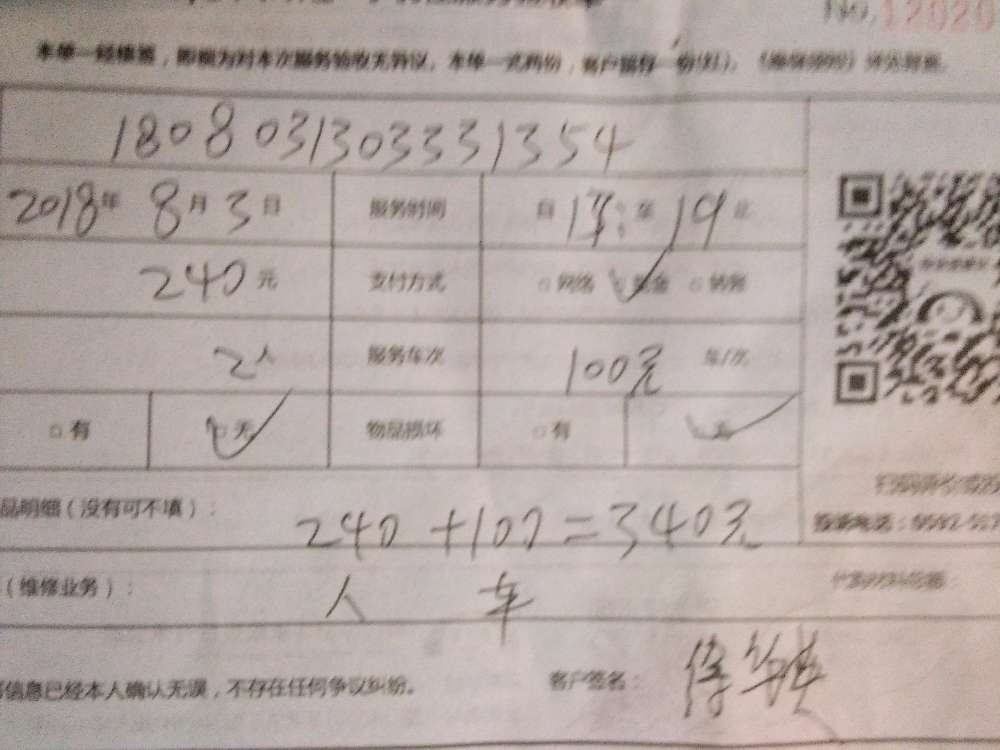 No.12020
本单一经填写，即视为对本次服务验收无异议。本单一式两份，客户留存一份(红)。
1808031303331354
2018年 8月 3日 服务时间 自 至 19
240元 支付方式 网络 现金 转账
2人 服务车次 100元 车/次
有 无 物品损坏 有 无
品明细（没有可不填）：
240+100=340元
（维修业务）：
人 车
信息已经本人确认无误，不存在任何争议纠纷。 客户签名：